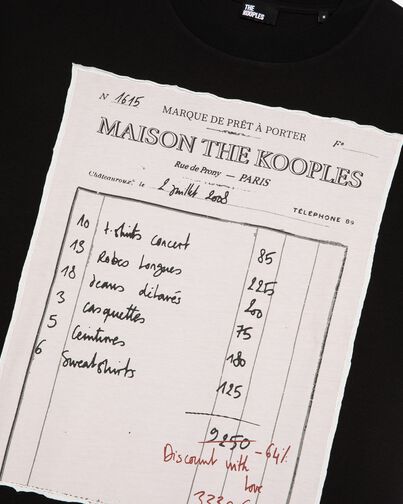 THE
KOOPLES
N° 1615
MARQUE DE PRÊT À PORTER
F°
MAISON THE KOOPLES
Rue de Prony — PARIS
Châteauroux, le 2 juillet 2008
TÉLÉPHONE 89
10 t-shirts concert 85
13 Robes longues 225
18 Jeans délavés 200
3 casquettes 75
5 Ceintures 180
6 Sweatshirts 125
9250 -64%
Discount with
love